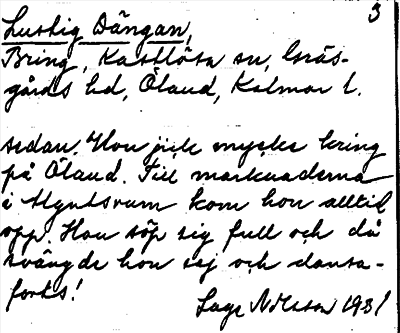 3
Lustig Dängan,
Bring, Kastlösa sn, Gräs-
gårds hd, Öland, Kalmar l.
sedan. Hon gick mycke kring
på Öland. Till marknaderna
i Algutsrum kom hon alltid
opp. Hon söp sig full och då
svängde hon sej och dansa-
forts!
Sage Nilsson 1931